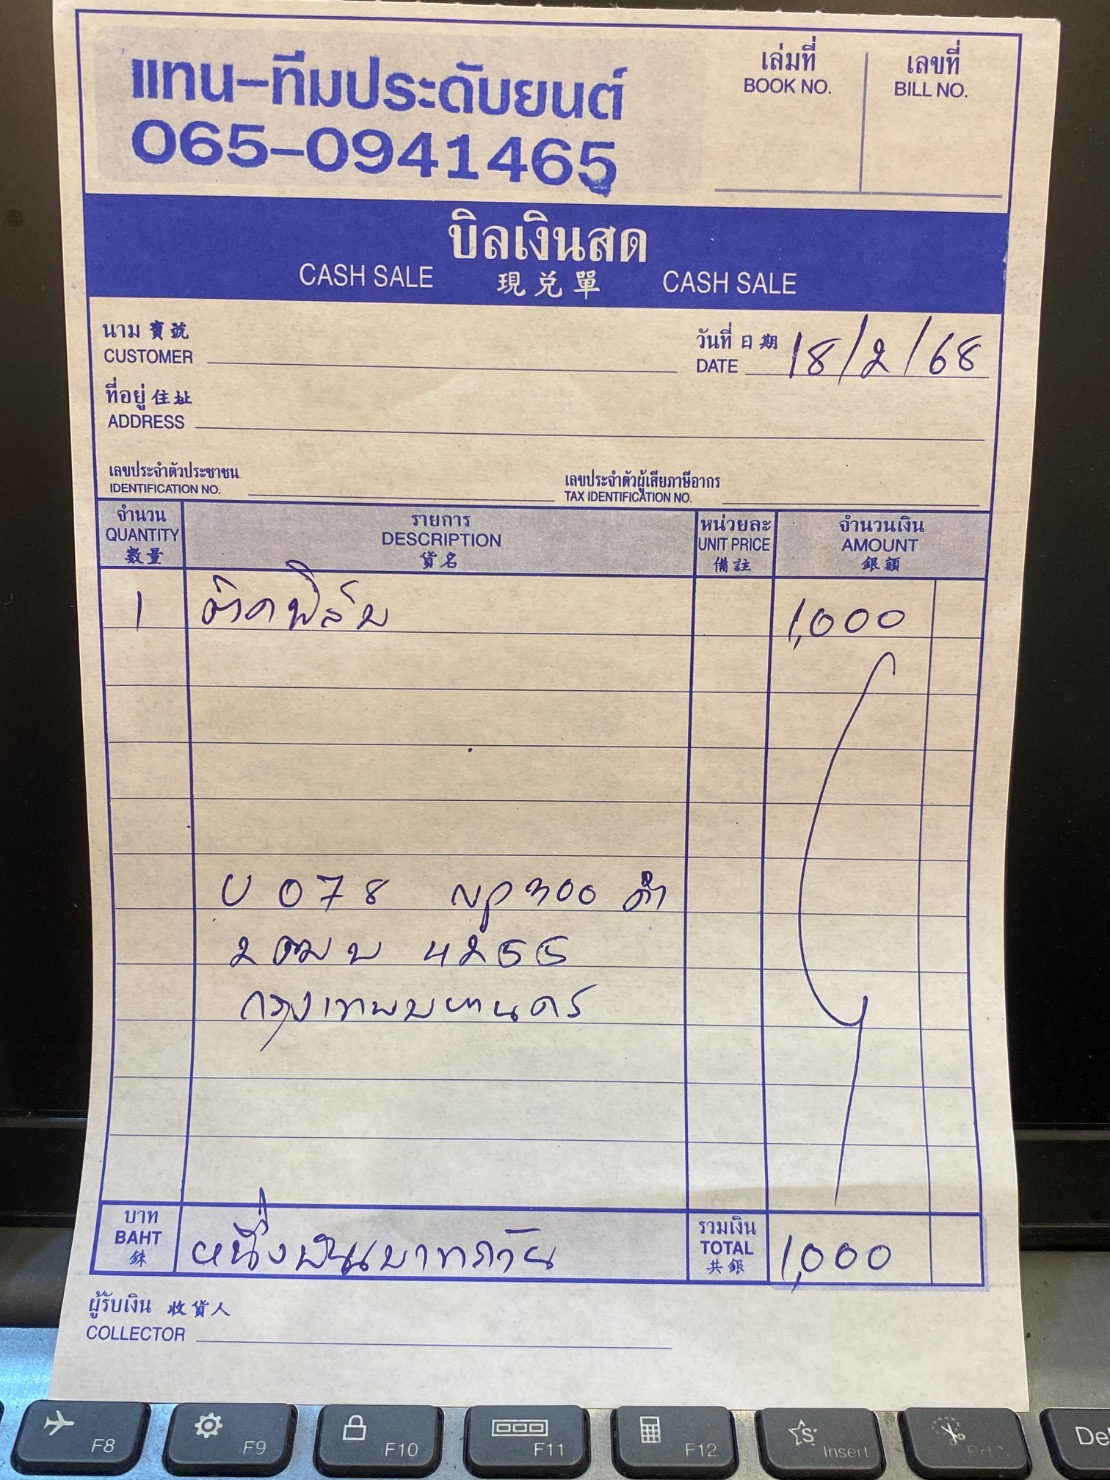 แทน-ทีมประดับยนต์
065-0941465
เล่มที่
BOOK NO.
เลขที่
BILL NO.
บิลเงินสด
CASH SALE 現兑單 CASH SALE
นาม 賓號
CUSTOMER
วันที่ 日期
DATE 18/2/68
ที่อยู่ 住址
ADDRESS
เลขประจำตัวประชาชน
IDENTIFICATION NO.
เลขประจำตัวผู้เสียภาษีอากร
TAX IDENTIFICATION NO.
จำนวน รายการ หน่วยละ จำนวนเงิน
QUANTITY DESCRIPTION UNIT PRICE AMOUNT
數量 貨名 備註 銀額
1 ติดฟิล์ม 1,000
U 078 NP300 ดำ
2ฒบ 4255
กรุงเทพมหานคร
บาท
BAHT
銖
หนึ่งพันบาทถ้วน
รวมเงิน
TOTAL
共銀
1,000
ผู้รับเงิน 收貨人
COLLECTOR
F8
F9
F10
F11
F12
Insert
De